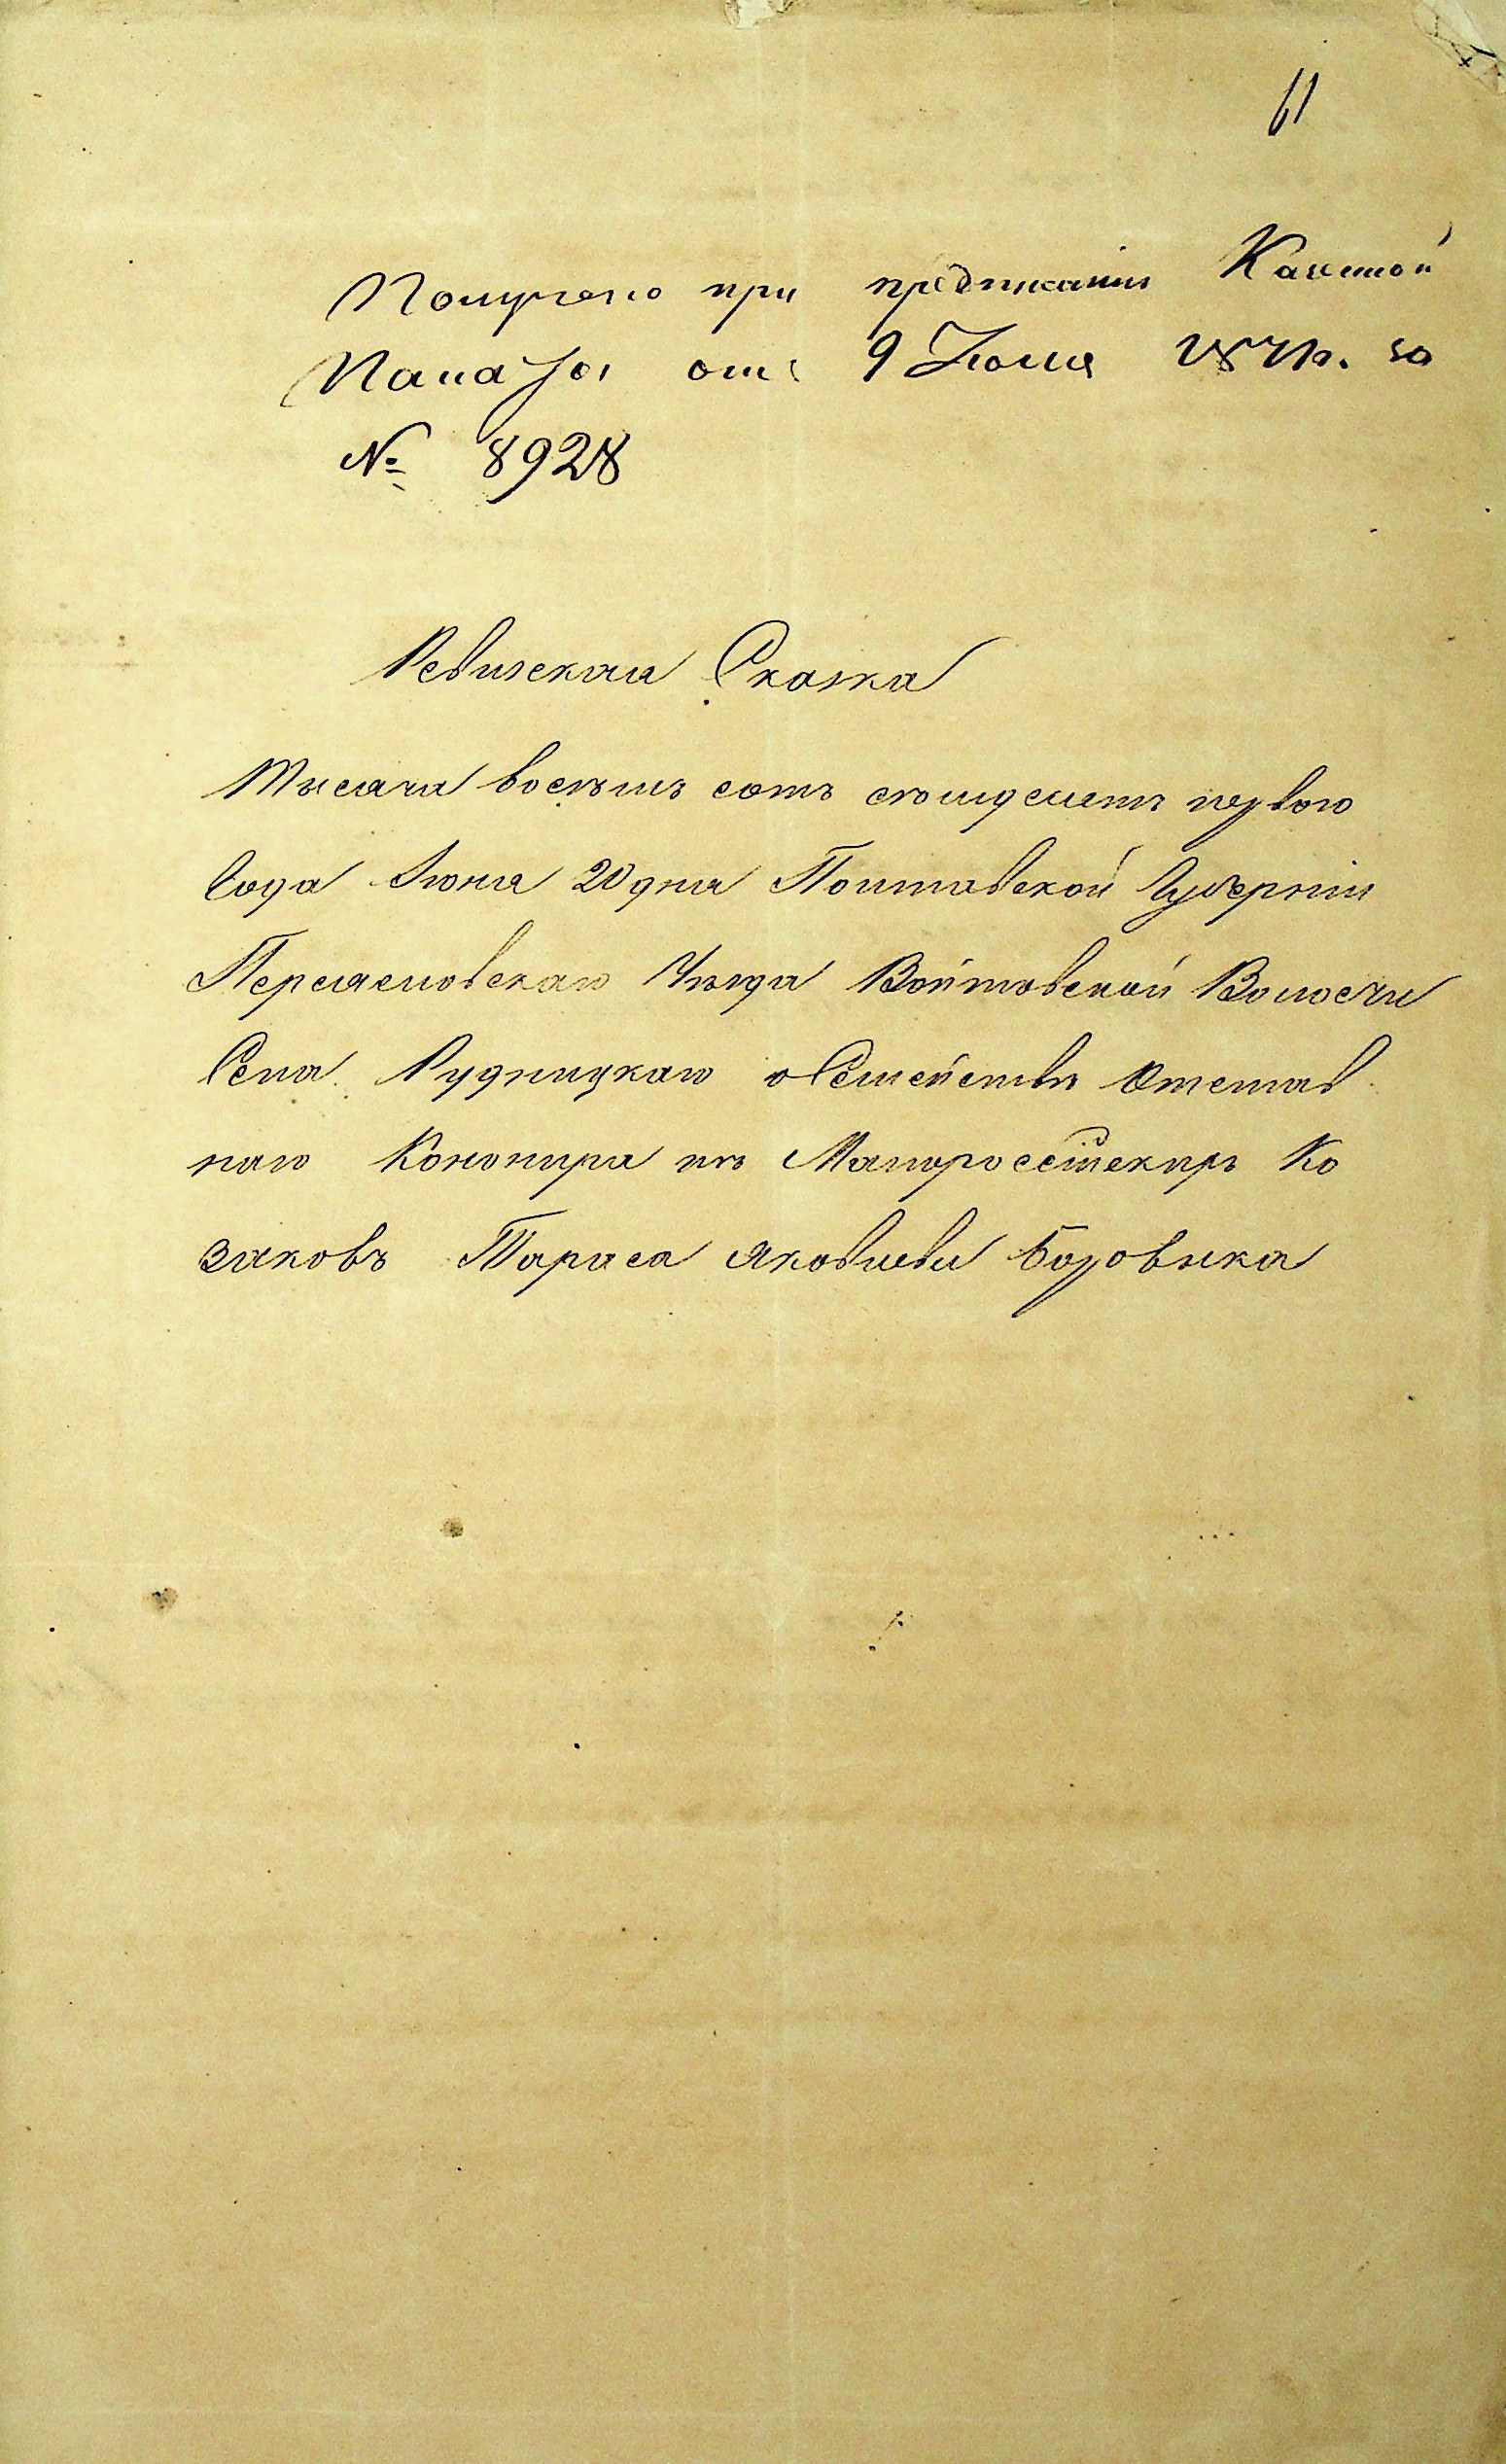 61
Получено при предписаніи Казенной
Палаты отъ 9 Іюля 1871г. за
№ 8928
Ревизская Сказка
Тысяча восемъ сотъ семдесятъ первого
Года Іюня 20 дня Полтавской Губерніи
Переяславскаго Уезда Войтовской Волости
Села Рудницкаго о Семействе Отстав
наго Кононира изъ Малоросейскихъ Ко
заковъ Тараса Яковлева Боровика